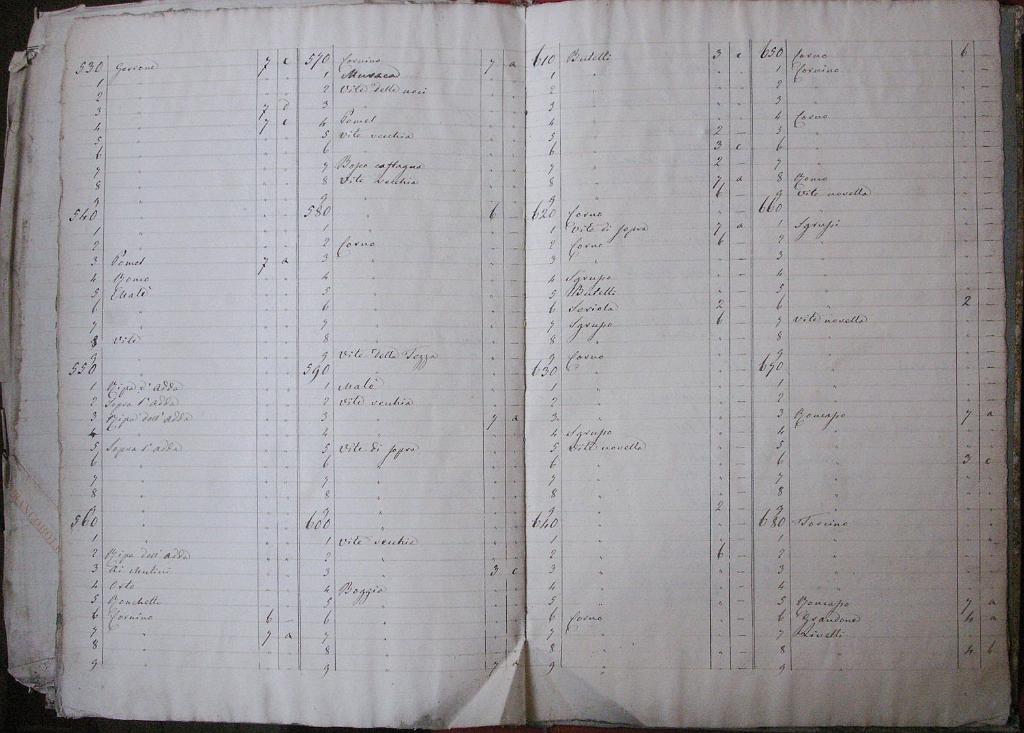 530 Gerrone 7 c
1 " " "
2 " " "
3 " 7 d
4 " 7 c
5 " " "
6 " " "
7 " " "
8 " " "
9 " " "
540 " " "
1 " " "
2 " " "
3 Pomel 7 a
4 Bonio " "
5 Malè " "
6 " " "
7 " " "
8 Vite " "
9 " " "
550 " " "
1 Ripa d'adda " "
2 Sopra l'adda " "
3 Ripa dell'adda " "
4 " " "
5 Sopra l'adda " "
6 " " "
7 " " "
8 " " "
9 " " "
560 " " "
1 " " "
2 Ripa dell'adda " "
3 Ai Mulini " "
4 Orto " "
5 Ronchetti " "
6 Cornino 6 –
7 " 7 a
8 " " "
9 " " "
570 Cornino 7 a
1 Muraca " "
2 Vite delle noci " "
3 " " "
4 Pomel " "
5 Vite vecchia " "
6 " " "
7 Bosco castagna " "
8 Vite vecchia " "
9 " " "
580 " 6 –
1 " " –
2 Corno " –
3 " " –
4 " " –
5 " " –
6 " " –
7 " " –
8 " " –
9 Vite della Pezza " –
590 " " –
1 Malè " –
2 Vite vecchia " –
3 " 7 a
4 " " "
5 Vite di sopra " "
6 " " "
7 " " "
8 " " "
9 " " "
600 " " "
1 Vite vecchia " "
2 " " "
3 " 3 c
4 Boggio " "
5 " " "
6 " " "
7 " " "
8 " " "
9 " 7 a
610 Buletti 3 c
1 " " "
2 " " "
3 " " "
4 " " "
5 " 2 –
6 " 3 c
7 " 2 –
8 " 7 a
9 " 6 –
620 Corno " –
1 Vite di sopra 7 a
2 Corno 6 –
3 " " –
4 Sgrupo " –
5 Buletti " –
6 Seriola 2 –
7 Sgrupo 6 –
8 " " –
9 Corno " –
630 " " –
1 " " –
2 " " –
3 " " –
4 Sgrupo " –
5 Vite novella " –
6 " " –
7 " " –
8 " " –
9 " 2 –
640 " " –
1 " " –
2 " 6 –
3 " " –
4 " " –
5 " " –
6 Corno " –
7 " " –
8 " " –
9 " " –
650 Corno 6 –
1 Cornino " –
2 " " –
3 " " –
4 Corno " –
5 " " –
6 " " –
7 " " –
8 Bonio " –
9 Vite novella " –
660 " " –
1 Sgrupi " –
2 " " –
3 " " –
4 " " –
5 " " –
6 " 2 –
7 Vite novella " –
8 " " –
9 " " –
670 " " –
1 " " –
2 " " –
3 Roncapo 7 a
4 " " "
5 " " "
6 " 3 c
7 " " "
8 " " "
9 " " "
680 " "
1 " " "
2 " " "
3 " " "
4 " " "
5 Roncapo 7 a
6 Grandone 4 a
7 Livelli " "
8 " 4 b